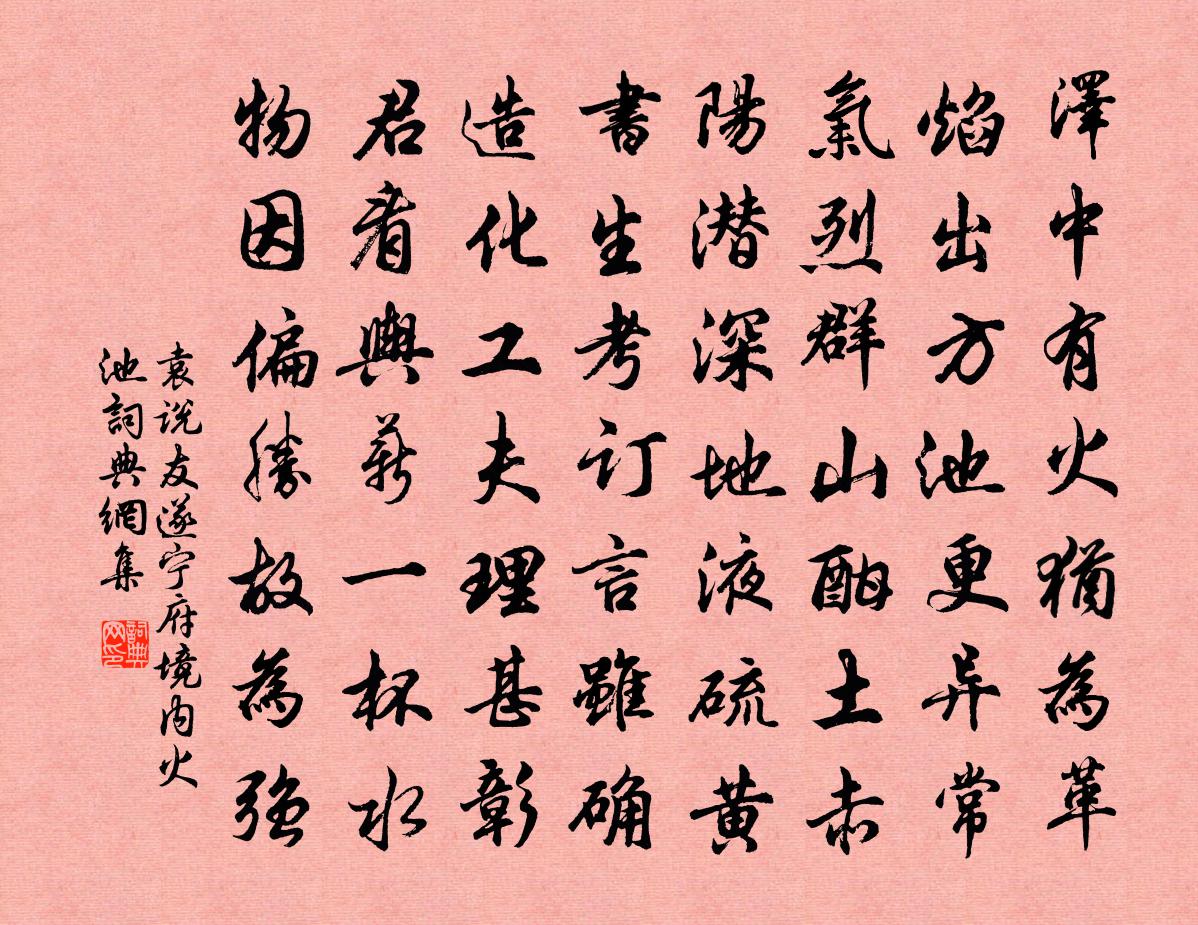 澤中有火猶為革
焰出方池更异常
氣烈群山酣土赤
陽潜深地液硫黄
書生考订言雖确
造化工夫理甚彰
君看輿薪一杯水
物因偏勝故為强
袁说友遂宁府境内火
池詞典網集
詞典网印